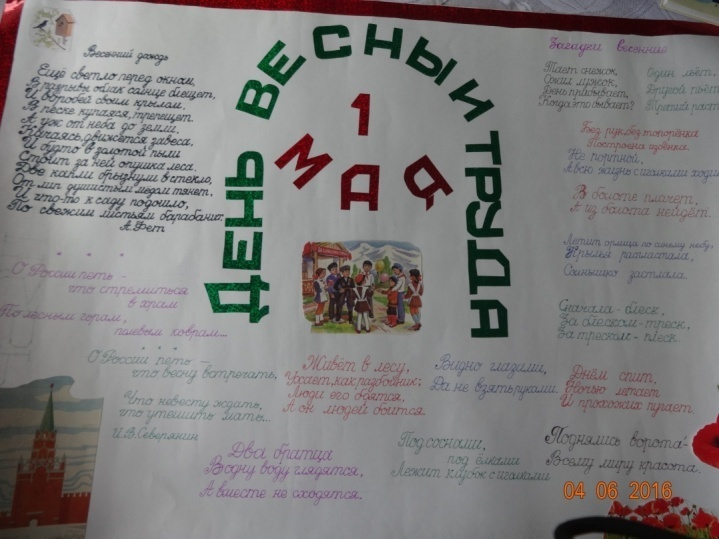 Весенний дождь
Ещё светло перед окном,
В разрывы облак солнце блещет,
И воробей своим крылом,
В песке купаяся, трепещет.
А уж от неба до земли,
Качаясь, движется завеса,
И будто в золотой пыли
Стоит за ней опушка леса.
Две капли брызнули в стекло,
От лип душистым мёдом тянет,
А что-то к саду подошло,
По свежим листьям барабанит.
А.Фет
День весны и труда
1
МАЯ
О России петь -
что стремиться
в храм
По лесным горам,
полевым коврам...
О России петь -
что весну встречать,
Что невесту ждать,
что утешить мать...
И.В.Северянин
Загадки весенние
Тает снежок,
Ожил лужок,
День прибывает,
Когда это бывает?
Один льёт,
Другой пьёт
Третий раст
Без рук, без топорёнка
Построена избёнка.
Не портной,
А всю жизнь с иголками ходи
В болоте плачет,
А из болота нейдёт.
Летит орлица по синему небу,
Крылья распластала,
Солнышко застлала.
Сначала - блеск,
За блеском - треск,
За треском - плеск.
Живёт в лесу,
Ухает, как разбойник:
Люди его боятся,
А он людей боится.
Видно глазами,
Да не взять руками.
Днём спит,
Ночью летает
И прохожих пугает.
Два братца
В одну воду глядятся,
А вместе не сходятся.
Под соснами,
под ёлками
Лежит клубок с иголками
Поднялись ворота -
Всему миру красота.
04 06 2016